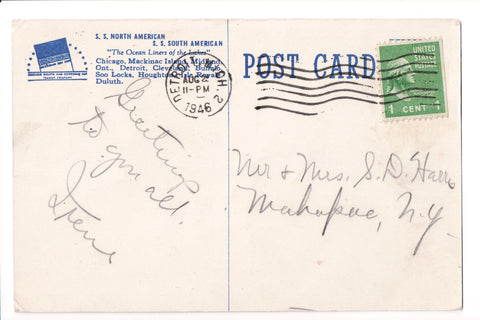 S. S. NORTH AMERICAN
S. S. SOUTH AMERICAN
"The Ocean Liners of the Lakes"
Chicago, Mackinac Island, Midland,
Ont., Detroit, Cleveland, Buffalo,
Soo Locks, Houghton, Isle Royale,
Duluth.
Greetings
to you all.
Irene
POST CARD
DETROIT, MICH. 2
AUG
11-PM
1946
UNITED
STATES
POSTAGE
1 CENT 1
Mr & Mrs. S. D. Harris
Mahopac, N.Y.